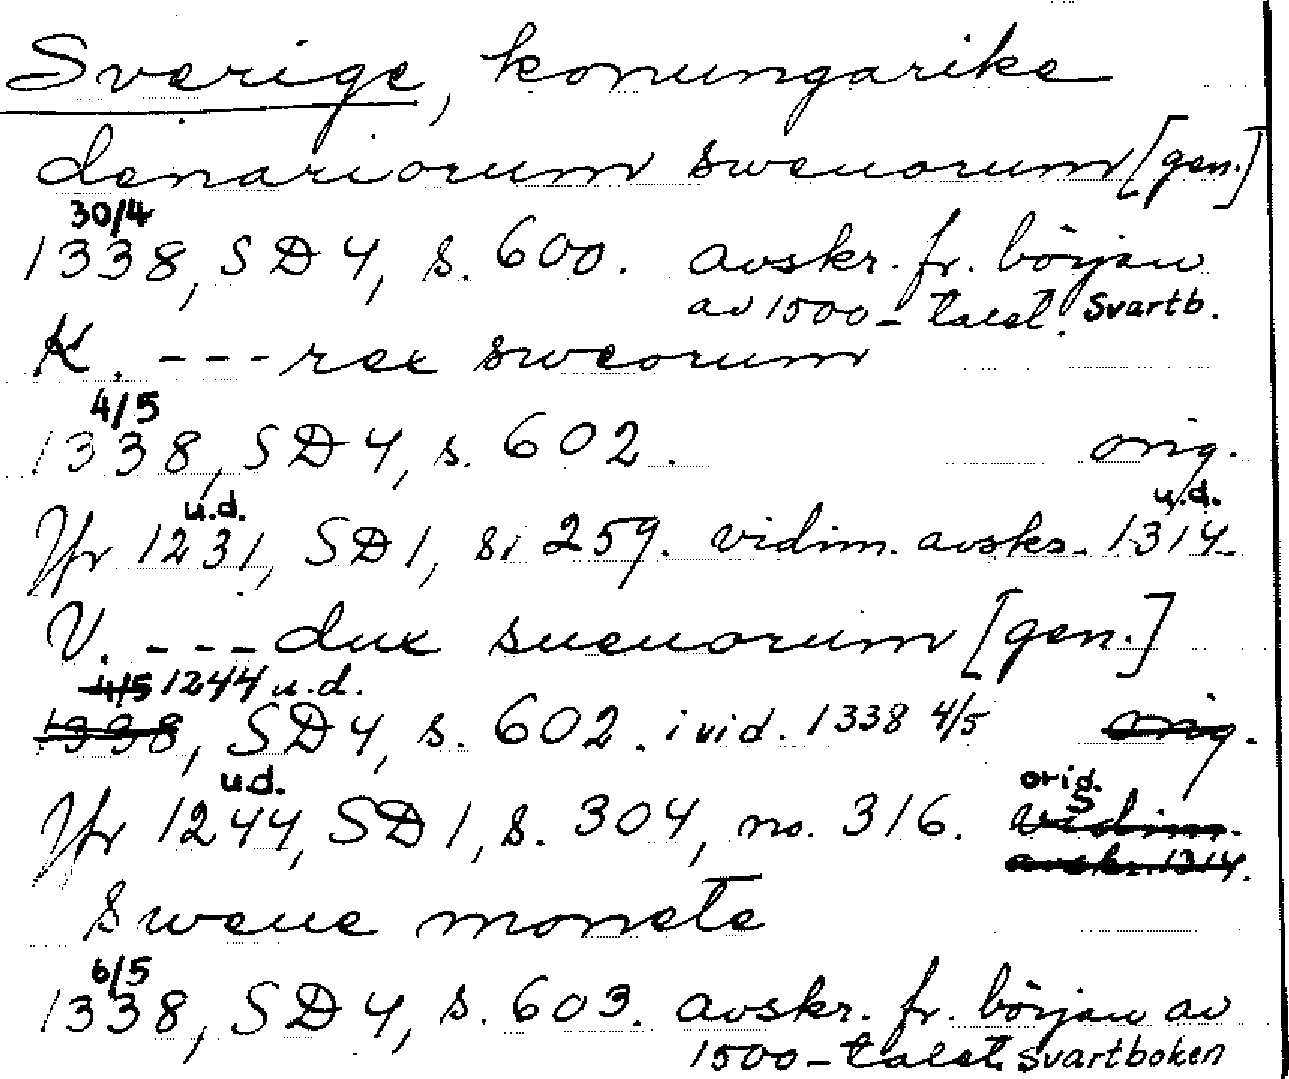 Sverige, konungarike
denariorum swenorum [gen.]
30/4
1338, SD 4, s. 600. avskr. fr. början
av 1500-talet. Svartb.
K. --- rex sweorum
4/5
1338, SD 4, s. 602. orig.
u.d. u.d.
Jfr 1231, SD 1, s. 259. vidim. avskr. 1314.
V. --- dux sueuorum [gen.]
4/5 1244 u.d.
1338, SD 4, s. 602. i vid. 1338 4/5 orig.
u.d. orig.
Jfr 1244, SD 1, s. 304, no. 316. vidim.
avskr. 1314.
Sweue monete
6/5
1338, SD 4, s. 603. avskr. fr. början av
1500-talet. Svartboken